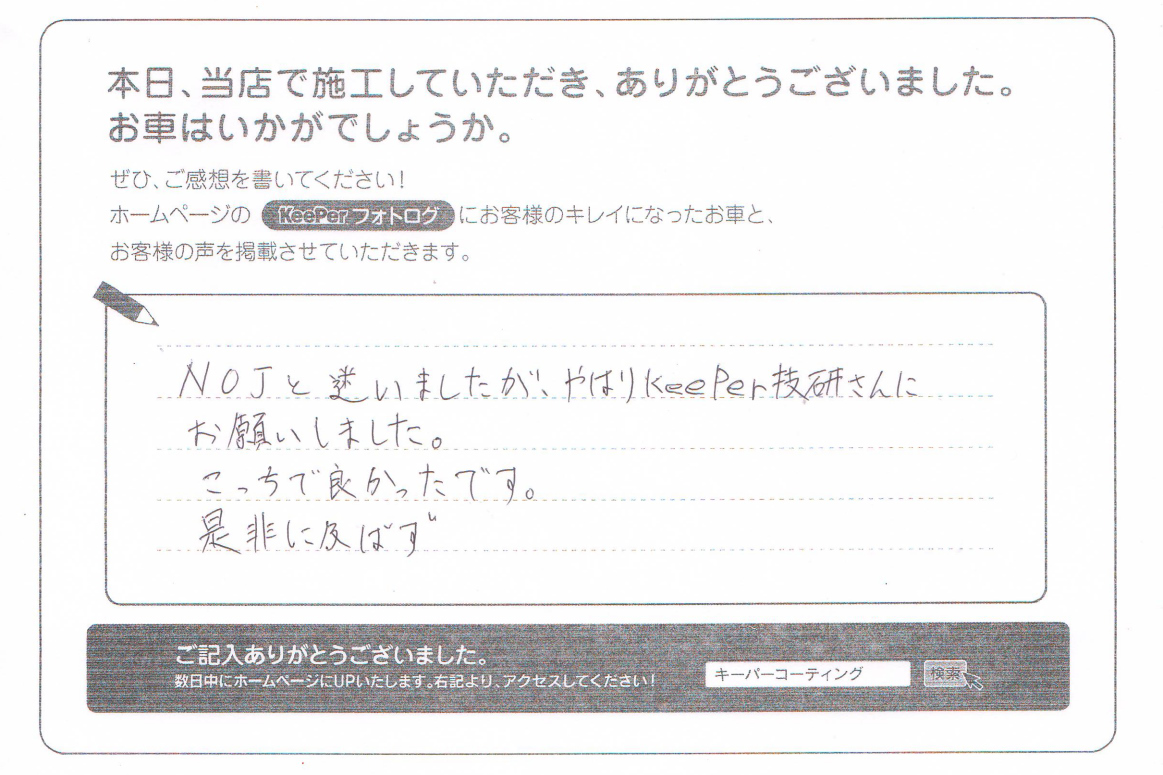 本日、当店で施工していただき、ありがとうございました。
お車はいかがでしょうか。
ぜひ、ご感想を書いてください!
ホームページの KeePer フォトログ にお客様のキレイになったお車と、
お客様の声を掲載させていただきます。
NOJと迷いましたが、やはりKeePer技研さんに
お願いしました。
こっちで良かったです。
是非に及ばず
ご記入ありがとうございました。
数日中にホームページにUPいたします。右記より、アクセスしてください!
キーパーコーティング 検索